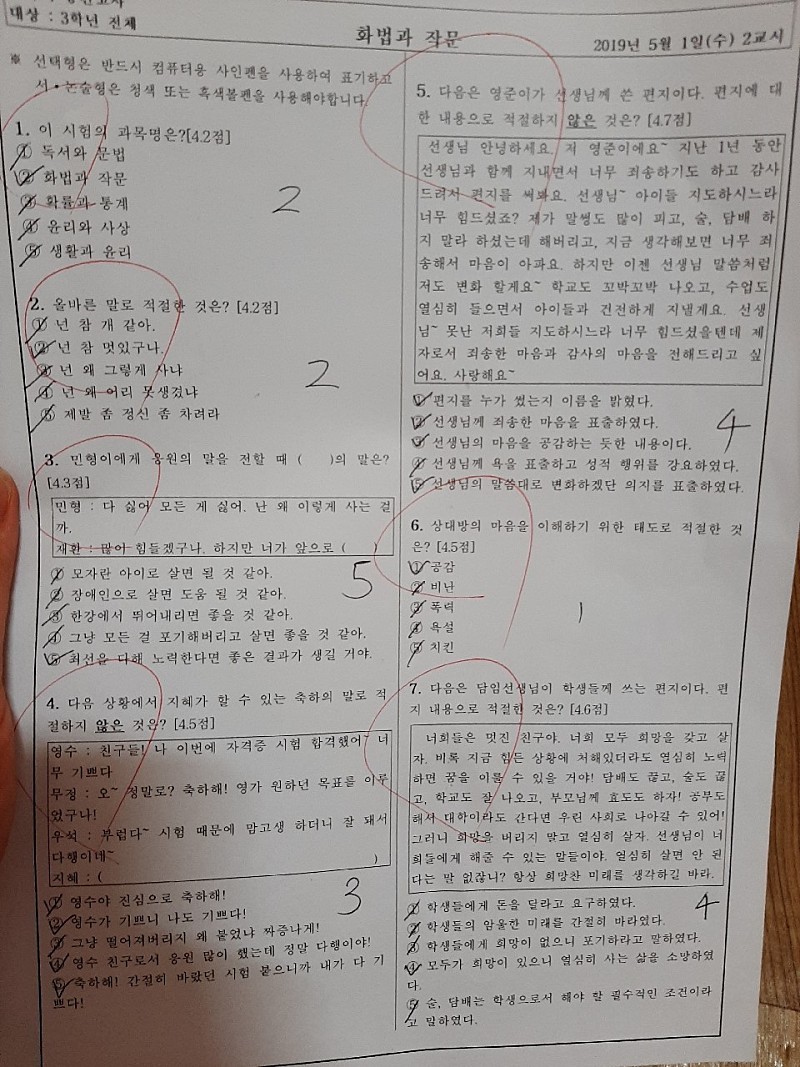 대상 : 3학년 전체
화법과 작문
2019년 5월 1일(수) 2교시
※ 선택형은 반드시 컴퓨터용 사인펜을 사용하여 표기하고
서•논술형은 청색 또는 흑색볼펜을 사용해야합니다.
1. 이 시험의 과목명은?[4.2점]
① 독서와 문법
② 화법과 작문
③ 확률과 통계
④ 윤리와 사상
⑤ 생활과 윤리
2
2. 올바른 말로 적절한 것은? [4.2점]
① 넌 참 개 같아.
② 넌 참 멋있구나.
③ 넌 왜 그렇게 사냐
④ 넌 왜 이리 못생겼냐
⑤ 제발 좀 정신 좀 차려라
2
3. 민형이에게 응원의 말을 전할 때 ( )의 말은?
[4.3점]
민형 : 다 싫어 모든 게 싫어. 난 왜 이렇게 사는 걸
까.
재환 : 많이 힘들겠구나. 하지만 너가 앞으로 ( )
① 모자란 아이로 살면 될 것 같아.
② 장애인으로 살면 도움 될 것 같아.
③ 한강에서 뛰어내리면 좋을 것 같아.
④ 그냥 모든 걸 포기해버리고 살면 좋을 것 같아.
⑤ 최선을 다해 노력한다면 좋은 결과가 생길 거야.
5
4. 다음 상황에서 지혜가 할 수 있는 축하의 말로 적
절하지 않은 것은? [4.5점]
영수 : 친구들! 나 이번에 자격증 시험 합격했어~ 너
무 기쁘다
무정 : 오~ 정말로? 축하해! 영가 원하던 목표를 이루
었구나!
우석 : 부럽다~ 시험 때문에 맘고생 하더니 잘 돼서
다행이네~
지혜 : ( )
① 영수야 진심으로 축하해!
② 영수가 기쁘니 나도 기쁘다!
③ 그냥 떨어져버리지 왜 붙었냐 짜증나게!
④ 영수 친구로서 응원 많이 했는데 정말 다행이야!
⑤ 축하해! 간절히 바랐던 시험 붙으니까 내가 다 기
쁘다!
3
5. 다음은 영준이가 선생님께 쓴 편지이다. 편지에 대
한 내용으로 적절하지 않은 것은? [4.7점]
선생님 안녕하세요. 저 영준이에요~ 지난 1년 동안
선생님과 함께 지내면서 너무 죄송하기도 하고 감사
드려서 편지를 써봐요. 선생님~ 아이들 지도하시느라
너무 힘드셨죠? 제가 말썽도 많이 피고, 술, 담배 하
지 말라 하셨는데 해버리고, 지금 생각해보면 너무 죄
송해서 마음이 아파요. 하지만 이젠 선생님 말씀처럼
저도 변화 할게요~ 학교도 꼬박꼬박 나오고, 수업도
열심히 들으면서 아이들과 건전하게 지낼게요. 선생
님~ 못난 저희들 지도하시느라 너무 힘드셨을텐데 제
자로서 죄송한 마음과 감사의 마음을 전해드리고 싶
어요. 사랑해요~
① 편지를 누가 썼는지 이름을 밝혔다.
② 선생님께 죄송한 마음을 표출하였다.
③ 선생님의 마음을 공감하는 듯한 내용이다.
④ 선생님께 욕을 표출하고 성적 행위를 강요하였다.
⑤ 선생님의 말씀대로 변화하겠단 의지를 표출하였다.
4
6. 상대방의 마음을 이해하기 위한 태도로 적절한 것
은? [4.5점]
① 공감
② 비난
③ 폭력
④ 욕설
⑤ 치킨
1
7. 다음은 담임선생님이 학생들께 쓰는 편지이다. 편
지 내용으로 적절한 것은? [4.6점]
너희들은 멋진 친구야. 너희 모두 희망을 갖고 살
자. 비록 지금 힘든 상황에 처해있더라도 열심히 노력
하면 꿈을 이룰 수 있을 거야! 담배도 끊고, 술도 끊
고, 학교도 잘 나오고, 부모님께 효도도 하자! 공부도
해서 대학이라도 간다면 우린 사회로 나아갈 수 있어!
그러니 희망을 버리지 말고 열심히 살자. 선생님이 너
희들에게 해줄 수 있는 말들이야. 열심히 살면 안 된
다는 말 없잖니? 항상 희망찬 미래를 생각하길 바라.
① 학생들에게 돈을 달라고 요구하였다.
② 학생들의 암울한 미래를 간절히 바라였다.
③ 학생들에게 희망이 없으니 포기하라고 말하였다.
④ 모두가 희망이 있으니 열심히 사는 삶을 소망하였
다.
⑤ 술, 담배는 학생으로서 해야 할 필수적인 조건이라
고 말하였다.
4